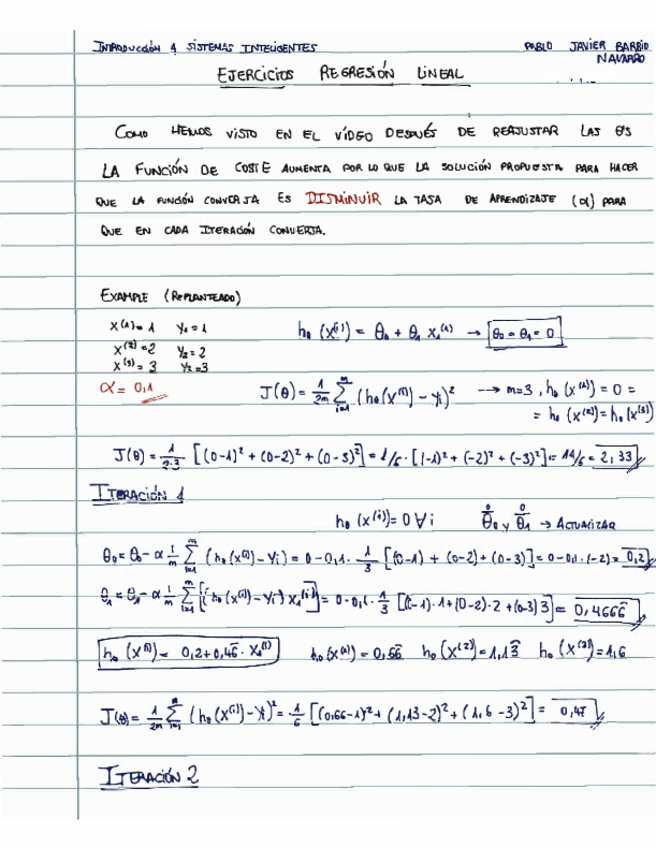 INTRODUCCIÓN A SISTEMAS INTELIGENTES
PABLO JAVIER BARRIO NAVARRO
EJERCICIOS REGRESIÓN LINEAL
COMO HEMOS VISTO EN EL VÍDEO DESPUÉS DE REAJUSTAR LAS θs
LA FUNCIÓN DE COSTE AUMENTA POR LO QUE LA SOLUCIÓN PROPUESTA PARA HACER
QUE LA FUNCIÓN CONVERJA ES DISMINUIR LA TASA DE APRENDIZAJE (α) PARA
QUE EN CADA ITERACIÓN CONVERJA.
EXAMPLE (REPLANTEADO)
X⁽¹⁾= 1 Y₁ = 1 h₀ (X⁽ⁱ⁾) = θ₀ + θ₁ X₁⁽¹⁾ → θ₀ = θ₁ = 0
X⁽²⁾=2 Y₂ = 2
X⁽³⁾= 3 Y₂ =3
α = 0,1 J(θ) = 1/2m Σᵢ₌₁ᵐ (h₀(X⁽ⁱ⁾) - Yᵢ)² → m=3, h₀ (X⁽¹⁾) = 0 =
= h₀ (X⁽²⁾) = h₀ (X⁽³⁾)
J(θ) = 1/2·3 [(0-1)² + (0-2)² + (0-3)²] = 1/6 · [(-1)² + (-2)² + (-3)²] = 14/6 = 2,33
ITERACIÓN 1
h₀ (X⁽ⁱ⁾) = 0 ∀ i θ₀ y θ₁ → ACTUALIZAR
θ₀ = θ₀ - α 1/m Σᵢ₌₁ᵐ (h₀(X⁽ⁱ⁾) - Yᵢ) = 0 - 0,1 · 1/3 [(0-1) + (0-2) + (0-3)] = 0 - 0,1 · (-2) = 0,2
θ₁ = θ₁ - α 1/m Σᵢ₌₁ᵐ [(h₀(X⁽ⁱ⁾) - Yᵢ) X₁⁽ⁱ⁾] = 0 - 0,1 · 1/3 [(0-1)·1 + (0-2)·2 + (0-3)3] = 0,4666
h₀ (X⁽ⁱ⁾) = 0,2+0,46 · X₁⁽ⁱ⁾ h₀ (X⁽¹⁾) = 0,66 h₀ (X⁽²⁾) = 1,13 h₀ (X⁽³⁾) = 1,6
J(θ) = 1/2m Σᵢ₌₁ᵐ (h₀(X⁽ⁱ⁾) - Yᵢ)² = 1/6 [(0,66-1)² + (1,13-2)² + (1,6-3)²] = 0,47
ITERACIÓN 2